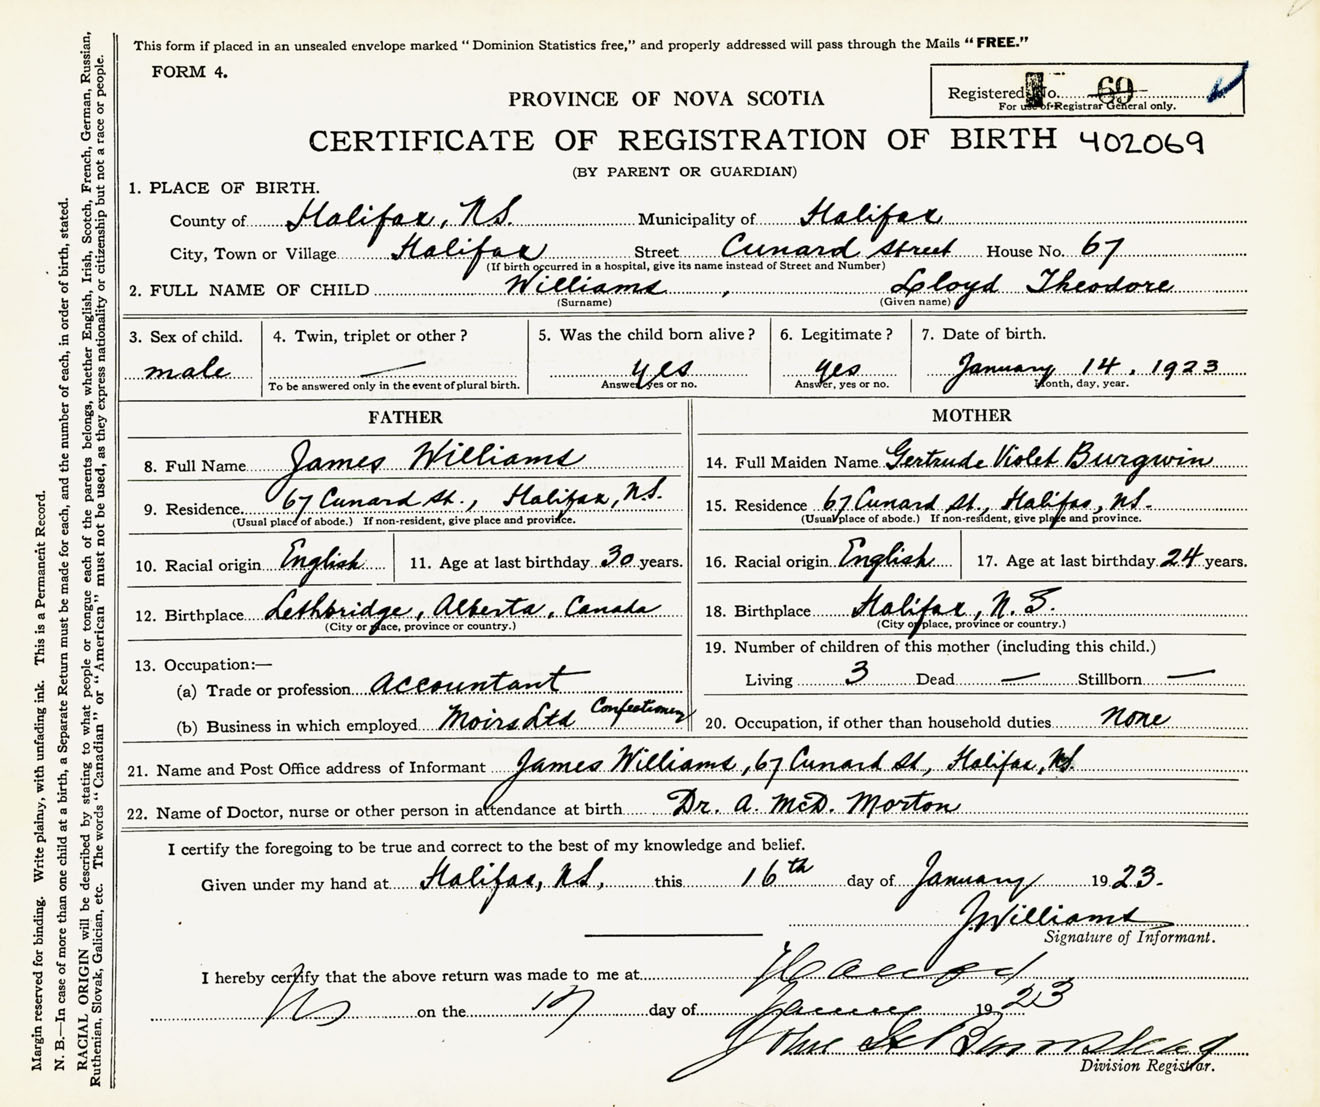 This form if placed in an unsealed envelope marked "Dominion Statistics free," and properly addressed will pass through the Mails "FREE."
FORM 4.
Registered No. 69
For use of Registrar General only.
PROVINCE OF NOVA SCOTIA
CERTIFICATE OF REGISTRATION OF BIRTH 402069
(BY PARENT OR GUARDIAN)
1. PLACE OF BIRTH.
County of Halifax, N.S. Municipality of Halifax
City, Town or Village Halifax Street Cunard Street House No. 67
(If birth occurred in a hospital, give its name instead of Street and Number)
2. FULL NAME OF CHILD Williams, Lloyd Theodore
(Surname) (Given name)
3. Sex of child. 4. Twin, triplet or other? 5. Was the child born alive? 6. Legitimate? 7. Date of birth.
male — yes yes January 14, 1923
To be answered only in the event of plural birth. Answer, yes or no. Answer, yes or no. Month, day, year.
FATHER
8. Full Name James Williams
9. Residence 67 Cunard St., Halifax, N.S.
(Usual place of abode.) If non-resident, give place and province.
10. Racial origin English 11. Age at last birthday 30 years.
12. Birthplace Lethbridge, Alberta, Canada
(City or place, province or country.)
13. Occupation:—
(a) Trade or profession Accountant
(b) Business in which employed Moirs Ltd Confectionery
MOTHER
14. Full Maiden Name Gertrude Violet Burgwin
15. Residence 67 Cunard St., Halifax, N.S.
(Usual place of abode.) If non-resident, give place and province.
16. Racial origin English 17. Age at last birthday 24 years.
18. Birthplace Halifax, N.S.
(City or place, province or country.)
19. Number of children of this mother (including this child.)
Living 3 Dead — Stillborn —
20. Occupation, if other than household duties none
21. Name and Post Office address of Informant James Williams, 67 Cunard St, Halifax, N.S.
22. Name of Doctor, nurse or other person in attendance at birth Dr. A. McD. Morton
I certify the foregoing to be true and correct to the best of my knowledge and belief.
Given under my hand at Halifax, N.S., this 16th day of January 1923.
J. Williams
Signature of Informant.
I hereby certify that the above return was made to me at
NS on the 17 day of 1923
John
Division Registrar.
Margin reserved for binding. Write plainly, with unfading ink. This is a Permanent Record.
N. B.—In case of more than one child at a birth, a Separate Return must be made for each, and the number of each, in order of birth, stated.
RACIAL ORIGIN will be described by stating to what people or tongue each of the parents belongs, whether English, Irish, Scotch, French, German, Russian,
Ruthenian, Slovak, Galician, etc. The words "Canadian" or "American" must not be used, as they express nationality or citizenship but not a race or people.